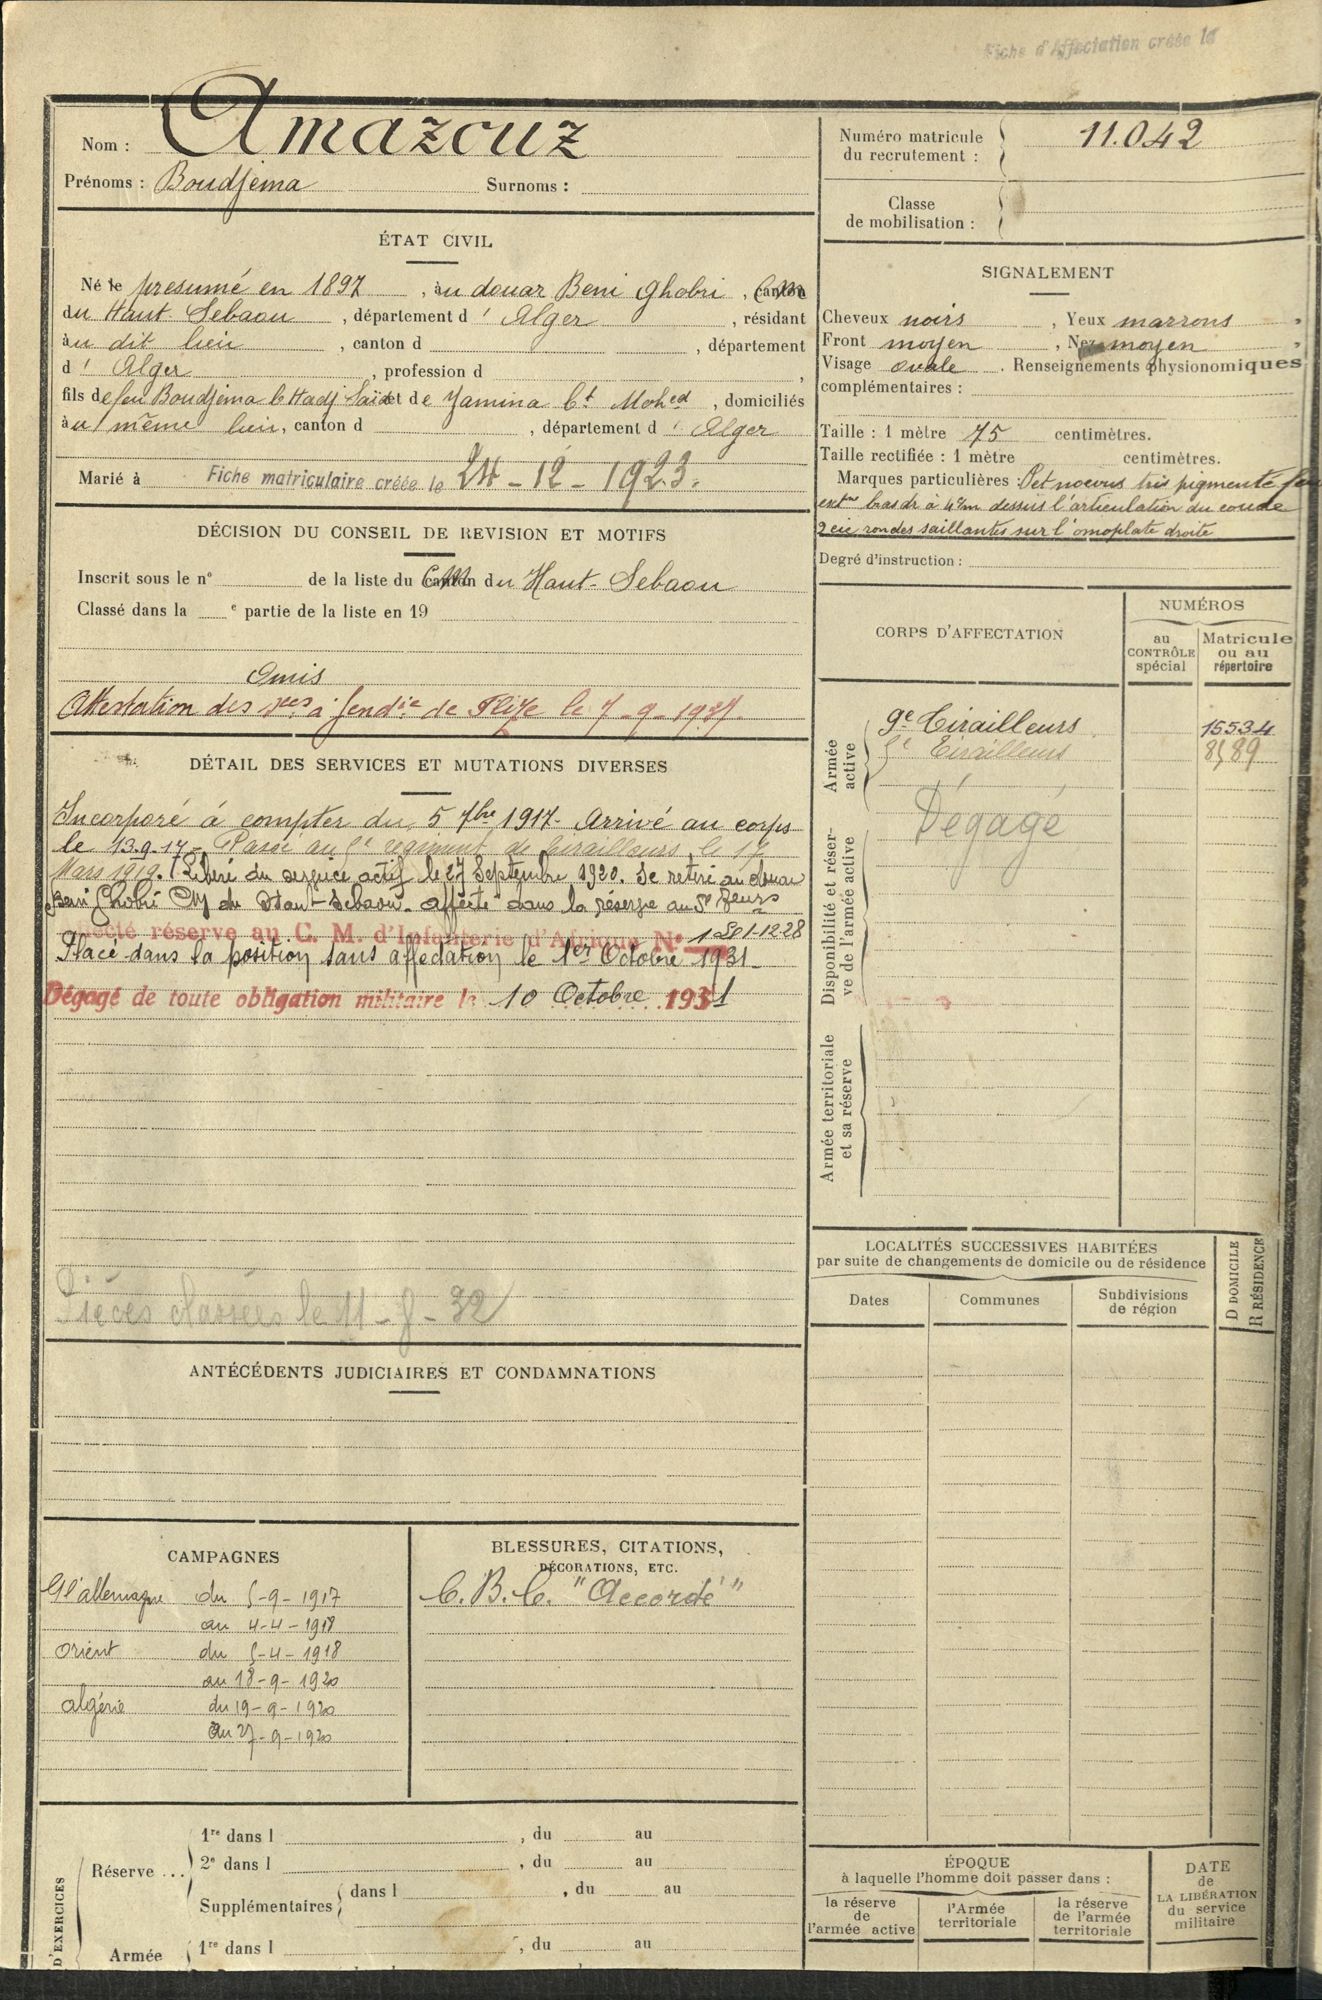 Fiche d'Affectation créée le
Nom : Amazouz
Prénoms : Boudjema Surnoms :
Numéro matricule
du recrutement : 11.042
Classe
de mobilisation :
ÉTAT CIVIL
Né le presumé en 1897, au douar Beni Ghobri, canton CM
du Haut-Sebaou, département d'Alger, résidant
au dit lieu, canton d , département
d'Alger, profession d ,
fils de feu Boudjema b Hadj Saïd et de Yamina bt Mohed, domiciliés
au même lieu, canton d , département d'Alger
Marié à Fiche matriculaire créée le 24-12-1923.
SIGNALEMENT
Cheveux noirs, Yeux marrons,
Front moyen, Nez moyen,
Visage ovale. Renseignements physionomiques
complémentaires :
Taille : 1 mètre 75 centimètres.
Taille rectifiée : 1 mètre centimètres.
Marques particulières : Pet noevus très pigmenté
ext ne bas dr à 4 c/m dessus l'articulation du coude
2 cic rondes saillantes sur l'omoplate droite
Degré d'instruction :
DÉCISION DU CONSEIL DE REVISION ET MOTIFS
Inscrit sous le n° de la liste du canton CM du Haut-Sebaou
Classé dans la e partie de la liste en 19
Omis
Attestation des à Gendie de le 7-9-19
CORPS D'AFFECTATION
NUMÉROS
au
CONTRÔLE
spécial
Matricule
ou au
répertoire
Armée
active
9e Tirailleurs 15534
5e Tirailleurs 8589
Dégagé
Disponibilité et réser-
ve de l'armée active
Armée territoriale
et sa réserve
DÉTAIL DES SERVICES ET MUTATIONS DIVERSES
Incorporé à compter du 5 7bre 1917. Arrivé au corps
le 13.9.17. Passé au 5e régiment de tirailleurs le 17
Mars 1919. Libéré du service actif le 27 Septembre 1920. Se retire au douar
Beni Ghobri CM du Haut-Sebaou. affecté dans la réserve au 5e Reurs
réserve au C. M. d'Infanterie d'Afrique N° 1-12-28
Placé dans la position sans affectation le 1er Octobre 1931
Dégagé de toute obligation militaire le 10 Octobre 1931
Pièces classées le 11-8-32
LOCALITÉS SUCCESSIVES HABITÉES
par suite de changements de domicile ou de résidence
D DOMICILE
R RÉSIDENCE
Dates
Communes
Subdivisions
de région
ANTÉCÉDENTS JUDICIAIRES ET CONDAMNATIONS
CAMPAGNES
C/ l'allemagne du 5-9-1917
au 4-4-1918
Orient du 5-4-1918
au 18-9-1920
algérie du 19-9-1920
au 27-9-1920
BLESSURES, CITATIONS,
DÉCORATIONS, ETC.
C.B.C. "Accordé"
D'EXERCICES
Réserve ...
1re dans l , du au
2e dans l , du au
Supplémentaires dans l , du au
Armée
1re dans l , du au
ÉPOQUE
à laquelle l'homme doit passer dans :
la réserve
de
l'armée active
l'Armée
territoriale
la réserve
de l'armée
territoriale
DATE
de
LA LIBÉRATION
du service
militaire